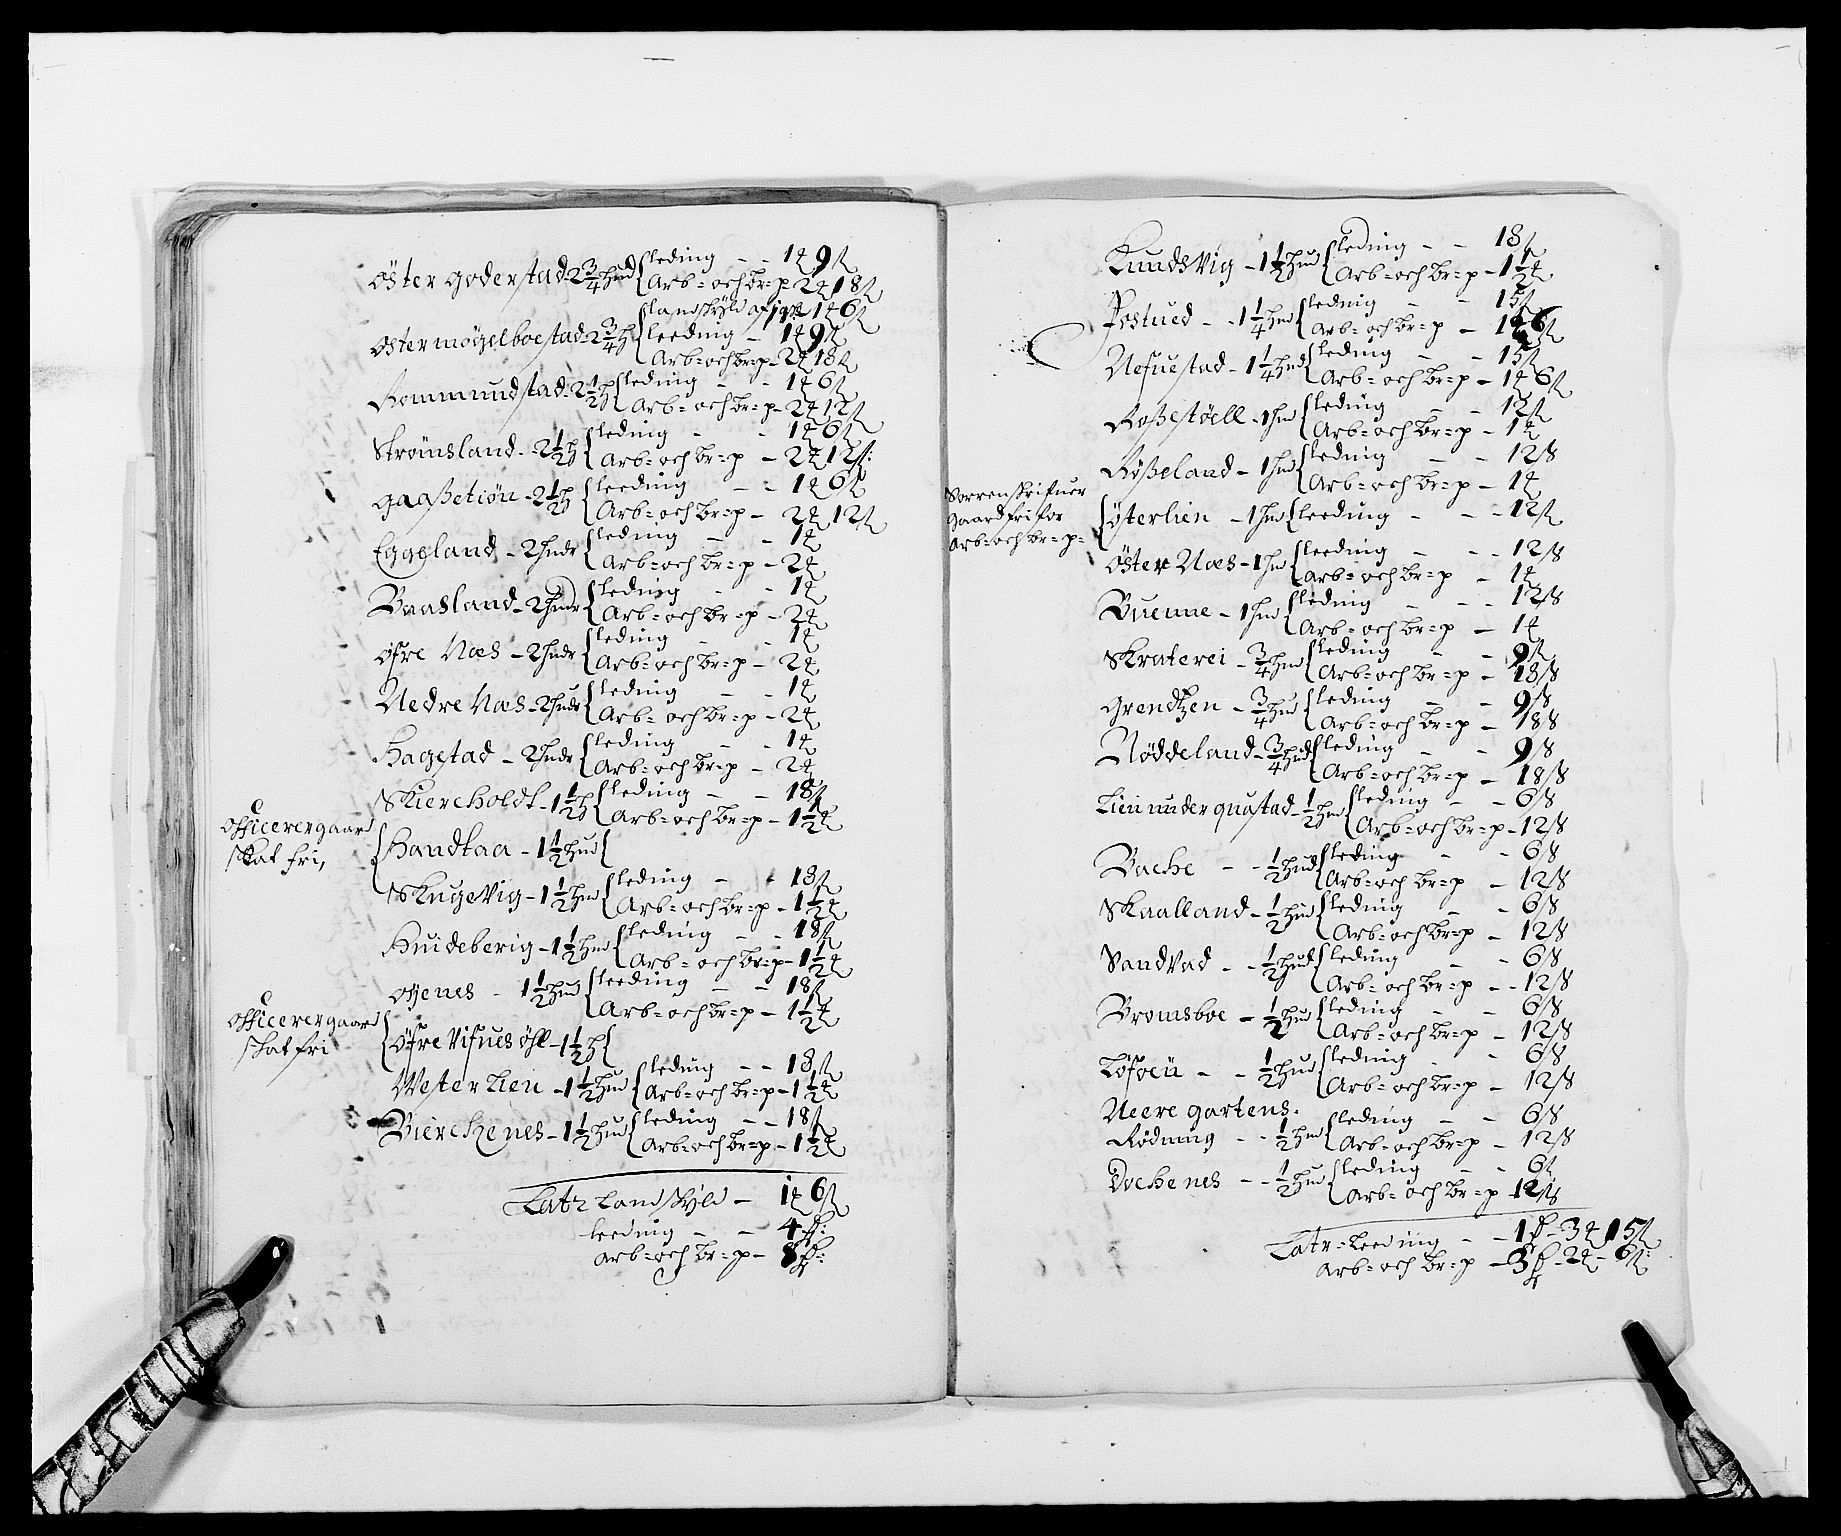 Öster goderstad - 2 3/4 hud { leding - - 1 ɱ 9 ß
Arb= och br=p - 2 ɱ 18 ß
landskyld af
1 ɱ 6 ß
Öster møgelboestad - 2 3/4 h { leeding - 1 ɱ 9 ß
Arb= och br=p - 2 ɱ 18 ß
Rommundstad - 2 1/2 h { leding - - 1 ɱ 6 ß
Arb= och br=p - 2 ɱ 12 ß
Strömsland - 2 1/2 h { leding - - 1 ɱ 6 ß
Arb= och br=p - 2 ɱ 12 ß:
gaaßetiön - 2 1/2 h { leeding - - 1 ɱ 6 ß
Arb= och br=p - 2 ɱ 12 ß
Eggeland - 2 hudr { leding - - 1 ɱ
Arb= och br=p - 2 ɱ
Baasland - 2 hudr { leding - - 1 ɱ
Arb= och br=p - 2 ɱ
øfre Næs - 2 hudr { leding - - 1 ɱ
Arb= och br=p - 2 ɱ
Nedre Næs - 2 hudr { leding - - 1 ɱ
Arb= och br=p - 2 ɱ
Hagestad - 2 hudr { leding - - 1 ɱ
Arb= och br=p - 2 ɱ
Skiereholdt - 1 1/2 h { leding - - 18 ß
Arb= och br=p - 1 1/2 ɱ
Officerergaard
skat fri,
{ Handkaa - 1 1/2 hud {
Skugevig - 1 1/2 hud { leding - - 18 ß
Arb= och br=p - 1 1/2 ɱ
Huideberig - 1 1/2 hud { leding - - 18 ß
Arb= och br=p - 1 1/2 ɱ
oyenes - 1 1/2 hud { leeding - - 18 ß
Arb= och br=p - 1 1/2 ɱ
Officerergaard
skat fri
{ Øfre Vifuesöhl - 1 1/2 h {
Wester Lien - 1 1/2 hud { leding - - 18 ß
Arb= och br=p - 1 1/2 ɱ
Bierckenes - 1 1/2 hud { leding - - 18 ß
Arb= och br=p - 1 1/2 ɱ
Latr Landskyld - 1 ɱ 6 ß
leeding - - 4
arb= och br=p - 8
Knudsvig - 1 1/2 hud { leding - - 18 ß
Arb= och br=p - 1 1/2 ɱ
Fostued - - 1 1/4 hud { leding - - 15 ß
Arb= och br=p - 1 ɱ 6 ß
Nefuestad - 1 1/4 hud { leding - - 15 ß
Arb= och br=p - 1 ɱ 6 ß
Roßestöell - 1 hud { leding - - 12 ß
Arb= och br=p - 1 ɱ
Røßeland - 1 hud { leding - - 12 ß
Arb= och br=p - 1 ɱ
Sorrenskrifuer
gaard fri for
Arb= och br=p -
{ østerlien - 1 hud { leeding - - - 12 ß
Öster Næs - 1 hud { leeding - - - 12 ß
Arb= och br=p - 1 ɱ
Buenne - 1 hud { leding - - - 12 ß
Arb= och br=p - 1 ɱ
Skraterei - 3/4 hud { leding - - 9 ß
Arb= och br=p - 18 ß
grendtzen - 3/4 hud { leding - - 9 ß
Arb= och br=p - 18 ß
Nøddeland - 3/4 hud { leding - - 9 ß
Arb= och br=p - 18 ß
Lien under quastad - 1/2 hud { leding - - 6 ß
Arb= och br=p - 12 ß
Bache - - 1/2 hud { leding - - 6 ß
Arb= och br=p - 12 ß
Skaalland - 1/2 hud { leding - - 6 ß
Arb= och br=p - 12 ß
Sandvad - - 1/2 hud { leding - - 6 ß
Arb= och br=p - - 12 ß
Bromsboe - 1/2 hud { leding - - 6 ß
Arb= och br=p - 12 ß
Løfoen - - 1/2 hud { leding - - 6 ß
Arb= och br=p - 12 ß
Neere gartens.
Rødning - - 1/2 hud { leding - - 6 ß
Arb= och br=p - 12 ß
Dochenes - - 1/2 hud { leding - - 6 ß
Arb= och br=p 12 ß
Latr= Leeding - - 1 - 3 ɱ 15 ß
Arb= och br=p - 3 - 2 ɱ - 6 ß: